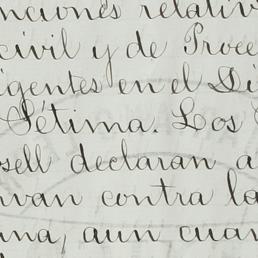 nciones relativ
civil y de Proce
igentes en el Di
Setima. Los
sell declaran a
van contra la
na, aun cuan